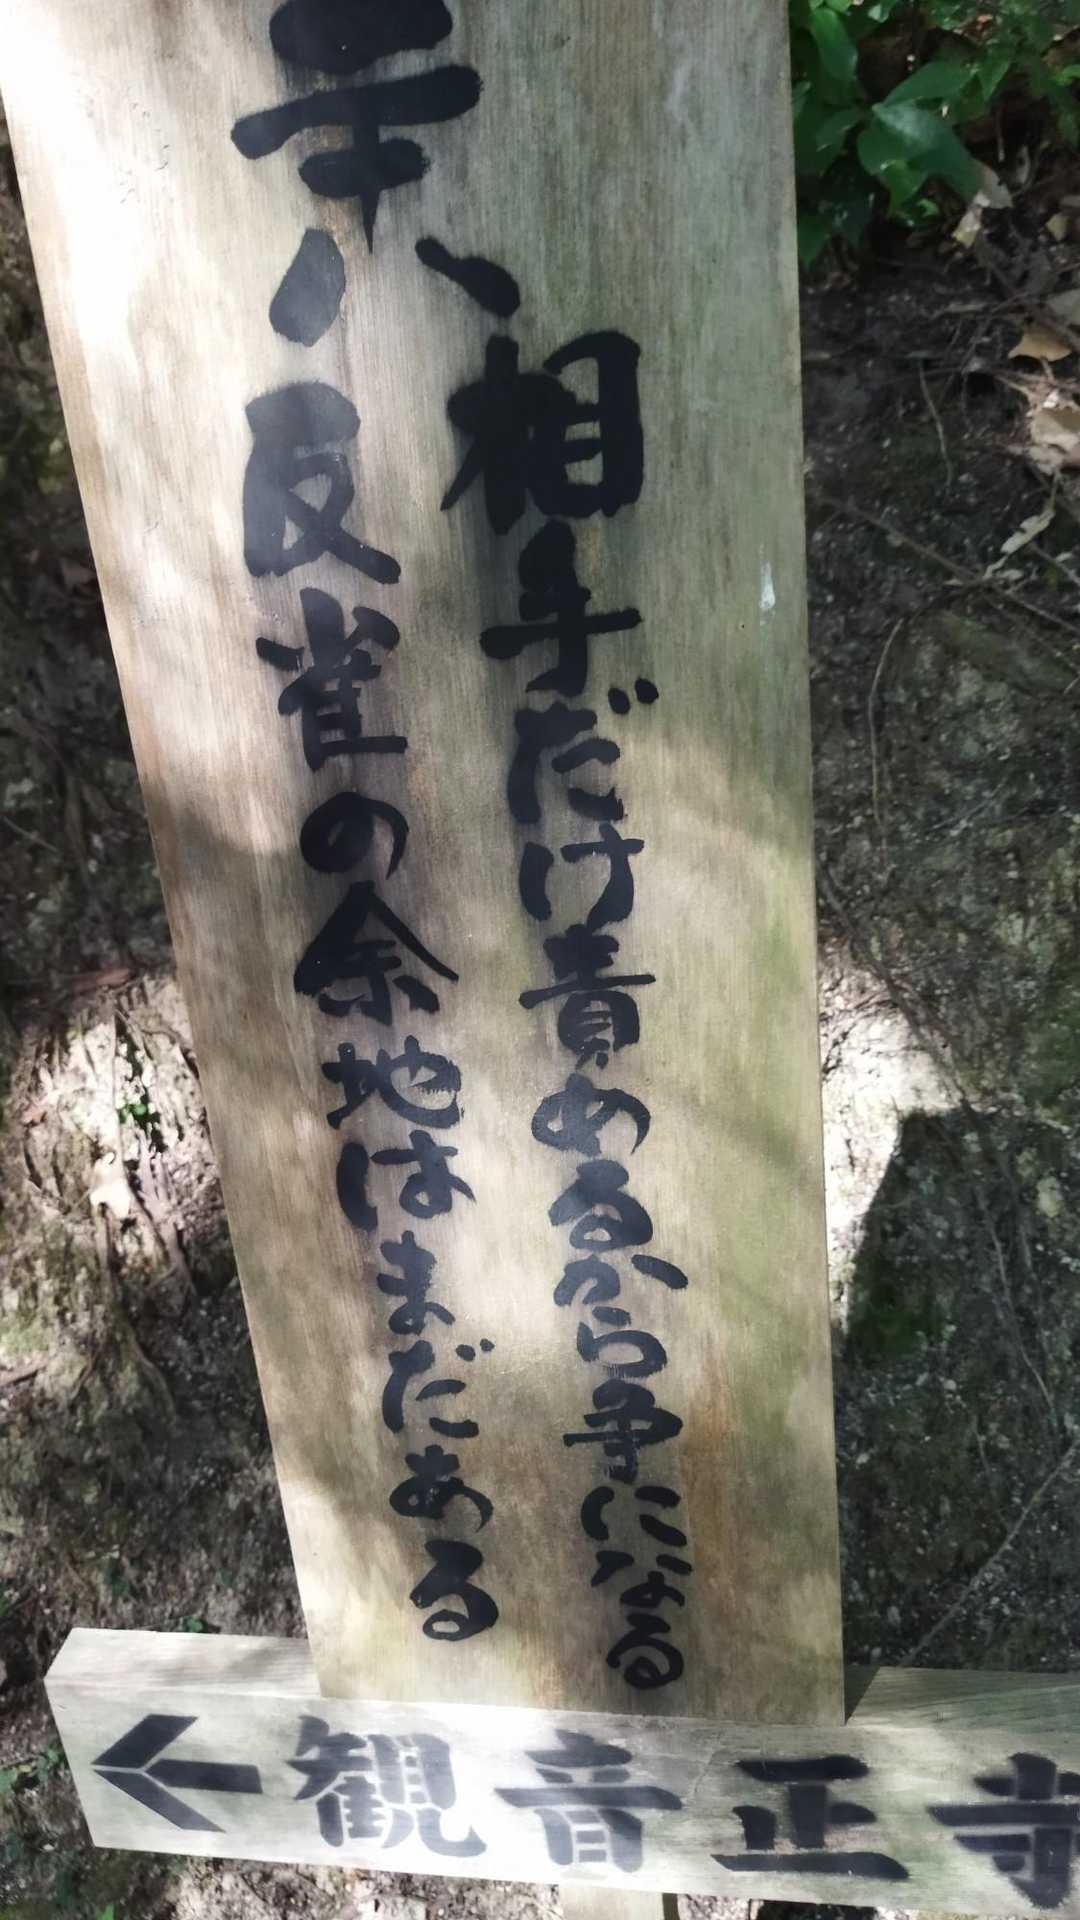 相手だけ責めるから争になる
反雀の余地はまだある
←観音正寺